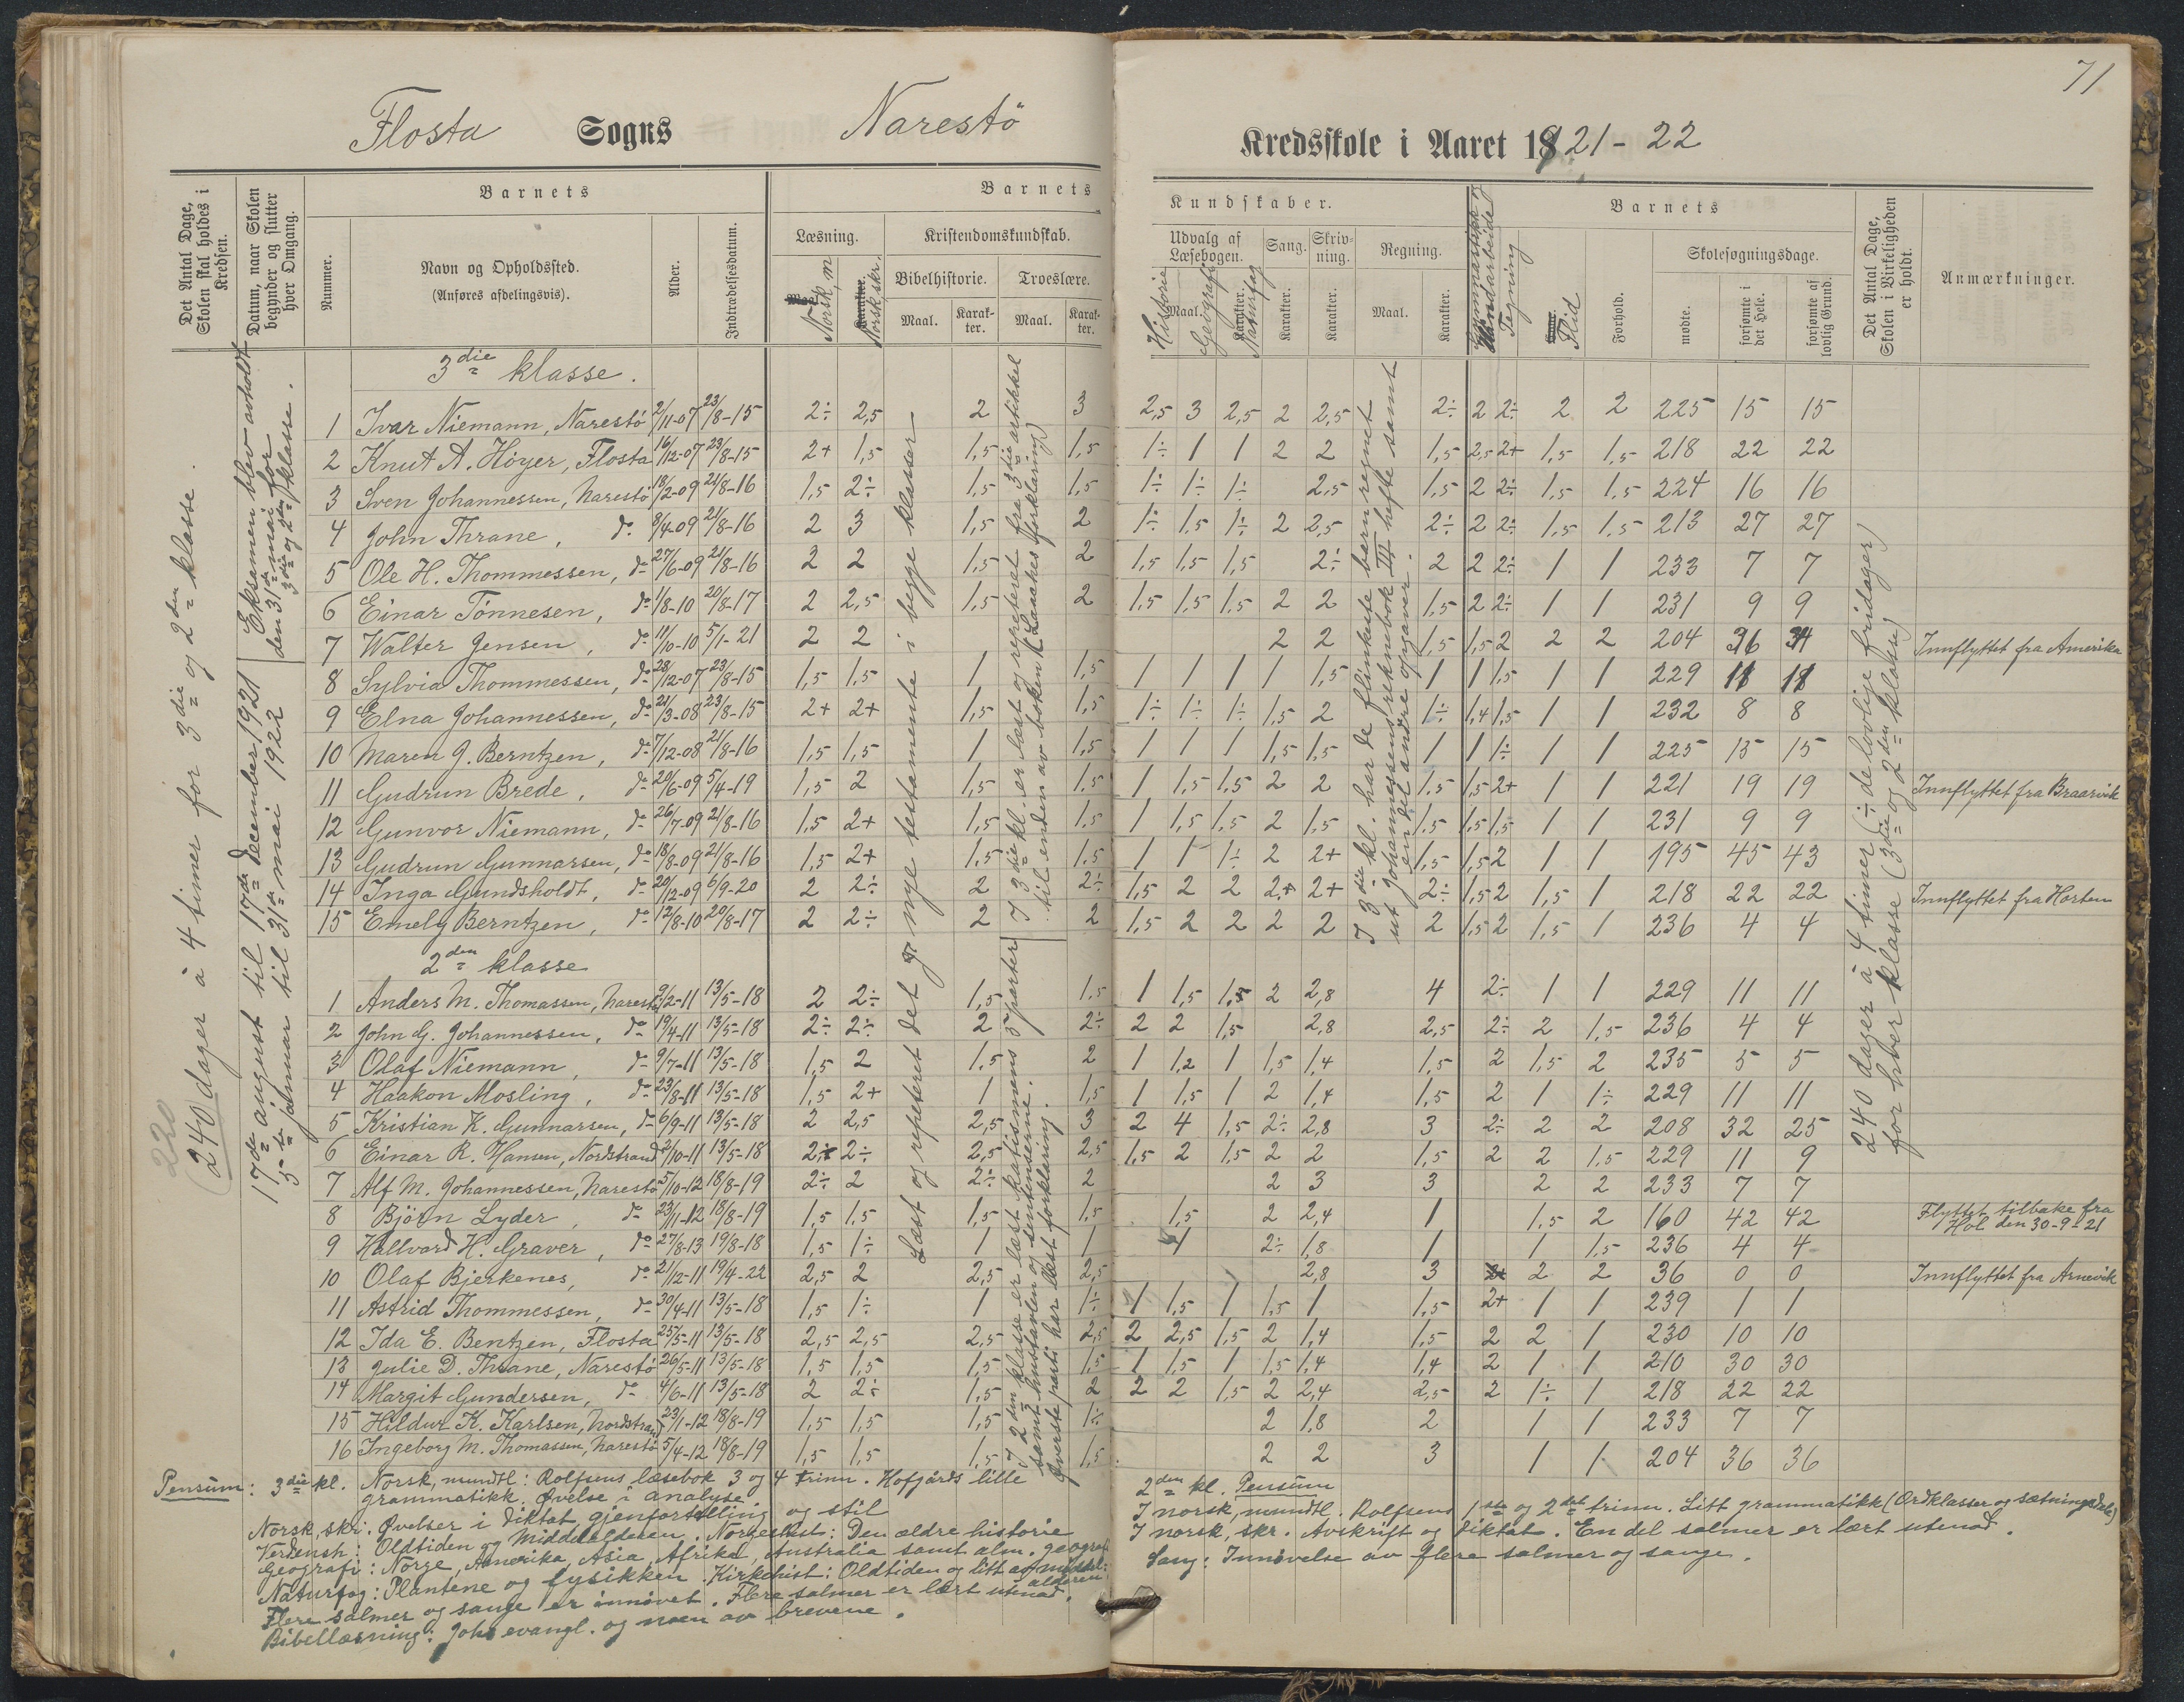 71
Flosta Sogns Narestö Kredsskole i Aaret 1921-22
Det Antal Dage, Skolen skal holdes i Kredsen.
Datum, naar Skolen begynder og slutter hver Omgang.
Barnets
Nummer.
Navn og Opholdssted.
(Anføres afdelingsvis).
Alder.
Indtrædelsesdatum.
Barnets Kundskaber.
Læsning.
Maal. Norsk, m
Karakter. Norsk skr.
Kristendomskundskab.
Bibelhistorie. Troeslære.
Maal. Karakter. Maal. Karakter.
Udvalg af Læsebogen. Sang. Skrivning. Regning.
Historie Maal. Geografi Karakter. Naturfag Karakter. Karakter. Maal. Karakter.
Haandarbeide
Tegning
Barnets
Flid
Forhold.
Skolesøgningsdage.
mødte.
forsømte i det Hele.
forsømte af lovlig Grund.
Det Antal Dage, Skolen i Virkeligheden er holdt.
Anmærkninger.
220
(240) dager à 4 timer for 3die og 2den klasse.
17de august til 17de december 1921
5te januar til 31te mai 1922
Eksamen blev avholdt den 31te mai for 3die og 2den klasse.
3die klasse.
1 Ivar Niemann, Narestö 2/11-07 23/8-15 2÷ 2,5 2 3 2,5 3 2,5 2 2,5 2÷ 2 2÷ 2 2 225 15 15
2 Knut A. Höyer, Flosta 16/12-07 23/8-15 2+ 1,5 1,5 1,5 1÷ 1 1 2 2 1,5 2,5 2+ 1,5 1,5 218 22 22
3 Sven Johannessen, Narestö 18/2-09 21/8-16 1,5 2÷ 1,5 1,5 1÷ 1÷ 1÷ 2,5 1,5 2 2÷ 1,5 1,5 224 16 16
4 John Thrane, do 8/4-09 21/8-16 2 3 1,5 2 1÷ 1,5 1÷ 2 2,5 2÷ 2 2÷ 1,5 1,5 213 27 27
5 Ole H. Thommessen, do 27/6-09 21/8-16 2 2 1,5 2 1,5 1,5 1,5 2÷ 2 2 2÷ 1 1 233 7 7
6 Einar Tönnesen, do 1/8-10 20/8-17 2 2,5 1,5 2 1,5 1,5 1,5 2 2 1,5 2 2÷ 1 1 231 9 9
7 Walter Jensen, do 11/10-10 5/1-21 2 2 2 2 1,5 1,5 2 2 2 204 36 34 Innflyttet fra Amerika
8 Sylvia Thommessen, do 28/12-07 23/8-15 1,5 1,5 1 1,5 1 1 1 1 1,5 1 1 1,5 1 1 229 11 11
9 Elna Johannessen, do 21/3-08 23/8-15 2+ 2+ 1,5 1,5 1÷ 1÷ 1÷ 1,5 2 1÷ 1,4 1,5 1 1 232 8 8
10 Maren G. Berntzen, do 7/12-08 21/8-16 1,5 1,5 1 1,5 1 1 1 1,5 1,5 1 1 1÷ 1 1 225 15 15
11 Gudrun Brede, do 20/6-09 5/4-19 1,5 2 1,5 1,5 1 1,5 1,5 2 2 1,5 1,5 2+ 1 1 221 19 19 Innflyttet fra Braarvik
12 Gunvor Niemann, do 26/7-09 21/8-16 1,5 2+ 1,5 1,5 1 1,5 1,5 2 1,5 1,5 1,5 1,5 1 1 231 9 9
13 Gudrun Gunnarsen, do 18/8-09 21/8-16 1,5 2+ 1,5 1,5 1 1 1÷ 2 2+ 1,5 1,5 2 1 1 195 45 43
14 Inga Gundsholdt, do 20/12-09 6/9-20 2 2÷ 2 2÷ 1,5 2 2 2+ 2+ 2÷ 1,5 2 1,5 1 218 22 22 Innflyttet fra Horten
15 Emely Berntzen, do 12/8-10 20/8-17 2 2÷ 2 2 1,5 2 2 2 2 2 1,5 2 1,5 1 236 4 4
2den klasse
1 Anders M. Thomassen, Narestö 9/2-11 13/5-18 2 2÷ 1,5 1,5 1 1,5 1,5 2 2,8 4 2÷ 1 1 229 11 11
2 John G. Johannessen, do 19/4-11 13/5-18 2÷ 2÷ 2 2÷ 2 2 1,5 2,8 2,5 2÷ 2 1,5 236 4 4
3 Olaf Niemann, do 9/7-11 13/5-18 1,5 2 1,5 2 1 1,2 1 1,5 1,4 1,5 2 1,5 2 235 5 5
4 Haakon Mosling, do 23/8-11 13/5-18 1,5 2+ 1 1,5 1 1,5 1 2 1,4 1,5 2 1 1÷ 229 11 11
5 Kristian K. Gunnarsen, do 6/9-11 13/5-18 2 2,5 2,5 3 2 4 1,5 2÷ 2,8 3 2÷ 2 2 208 32 25
6 Einar R. Hansen, Nordstrand 2/10-11 13/5-18 2÷ 2÷ 2,5 2,5 1,5 2 1,5 2 2 1,5 2 2 1,5 229 11 9
7 Alf M. Johannessen, Narestö 5/10-12 18/8-19 2÷ 2 2÷ 2 2 3 3 2 2 233 7 7
8 Björn Lyder, do 23/11-12 18/8-19 1,5 1,5 1,5 1,5 1,5 2 2,4 1 1,5 2 160 42 42 Flyttet tilbake fra Hol den 30-9-21
9 Hallvard H. Graver, do 27/8-13 19/8-18 1,5 1÷ 1 1 1 2÷ 1,8 1 1 1,5 236 4 4
10 Olaf Bjerkenes, do 21/12-11 19/4-22 2,5 2 2,5 2,5 2,8 3 2 2 36 0 0 Innflyttet fra Arnevik
11 Astrid Thommessen, do 30/4-11 13/5-18 1,5 1÷ 1 1÷ 1 1,5 1 1,5 1 1,5 2+ 1 1 239 1 1
12 Ida E. Bentzen, Flosta 25/5-11 13/5-18 2,5 2,5 2,5 2,5 2 2,5 1,5 2 1,4 1,5 2 2 1 230 10 10
13 Julie D. Thrane, Narestö 26/5-11 13/5-18 1,5 1,5 1,5 1,5 1 1,5 1 1,5 1,4 1,4 2 1 1 210 30 30
14 Margit Gundersen, do 4/6-11 13/5-18 2 2÷ 1,5 2 2 2 1,5 2 2,4 2,5 2 1÷ 1 218 22 22
15 Hildur K. Karlsen, Nordstrand 23/1-12 18/8-19 1,5 1,5 1,5 1÷ 2 1,8 2 1 1 233 7 7
16 Ingeborg M. Thomassen, Narestö 5/4-12 18/8-19 1,5 1,5 1,5 1,5 2 2 3 1 1 204 36 36
Læst og repeteret det nye testamente i begge klasser.
I 3die kl. er læst og repeteret fra 3die artikkel
til enden av boken (K. Laaches forklaring)
I 2den klasse er læst katismens 5 parter
samt hustavlen og sentimserne.
Øverste parti har læst forklaring.
I 3die kl. har de flinkeste barn regnet
ut Johannessens regnebok III hefte samt
en del andre opgaver.
240 dager à 4 timer ÷ de lovlige fridager)
for hver klasse (3die og 2den klasse)
Pensum: 3die kl. Norsk, mundtl: Rolfsens læsebok 3 og 4 trinn. Hofgårds lille
grammatikk. Øvelse i analyse
Norsk, skr. Øvelser i diktat gjenfortelling og stil
Verdensh: Oldtiden og Middelalderen. Norgeshist: Den ældre historie
Geografi: Norge, Amerika, Asia, Afrika, Australia samt alm. geograf
Naturfag: Plantene og fysikken. Kirkehist: Oldtiden og litt av middelalderen.
Flere salmer og sange er innövet. Flere salmer er lært utenad.
Bibellæsning: Joh. evangl. og noen av brevene.
2den kl. Pensum
I norsk, mundtl. Rolfsens 1ste og 2det trinn. Litt grammatikk (Ordklasser og sætningsdele)
I norsk, skr. Avskrift og diktat. En del salmer er lært utenad.
Sang: Innövelse av flere salmer og sange.